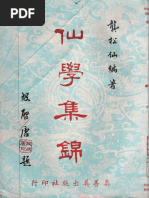 龔松仙編著
仙學集錦
題
真善美出版社印行